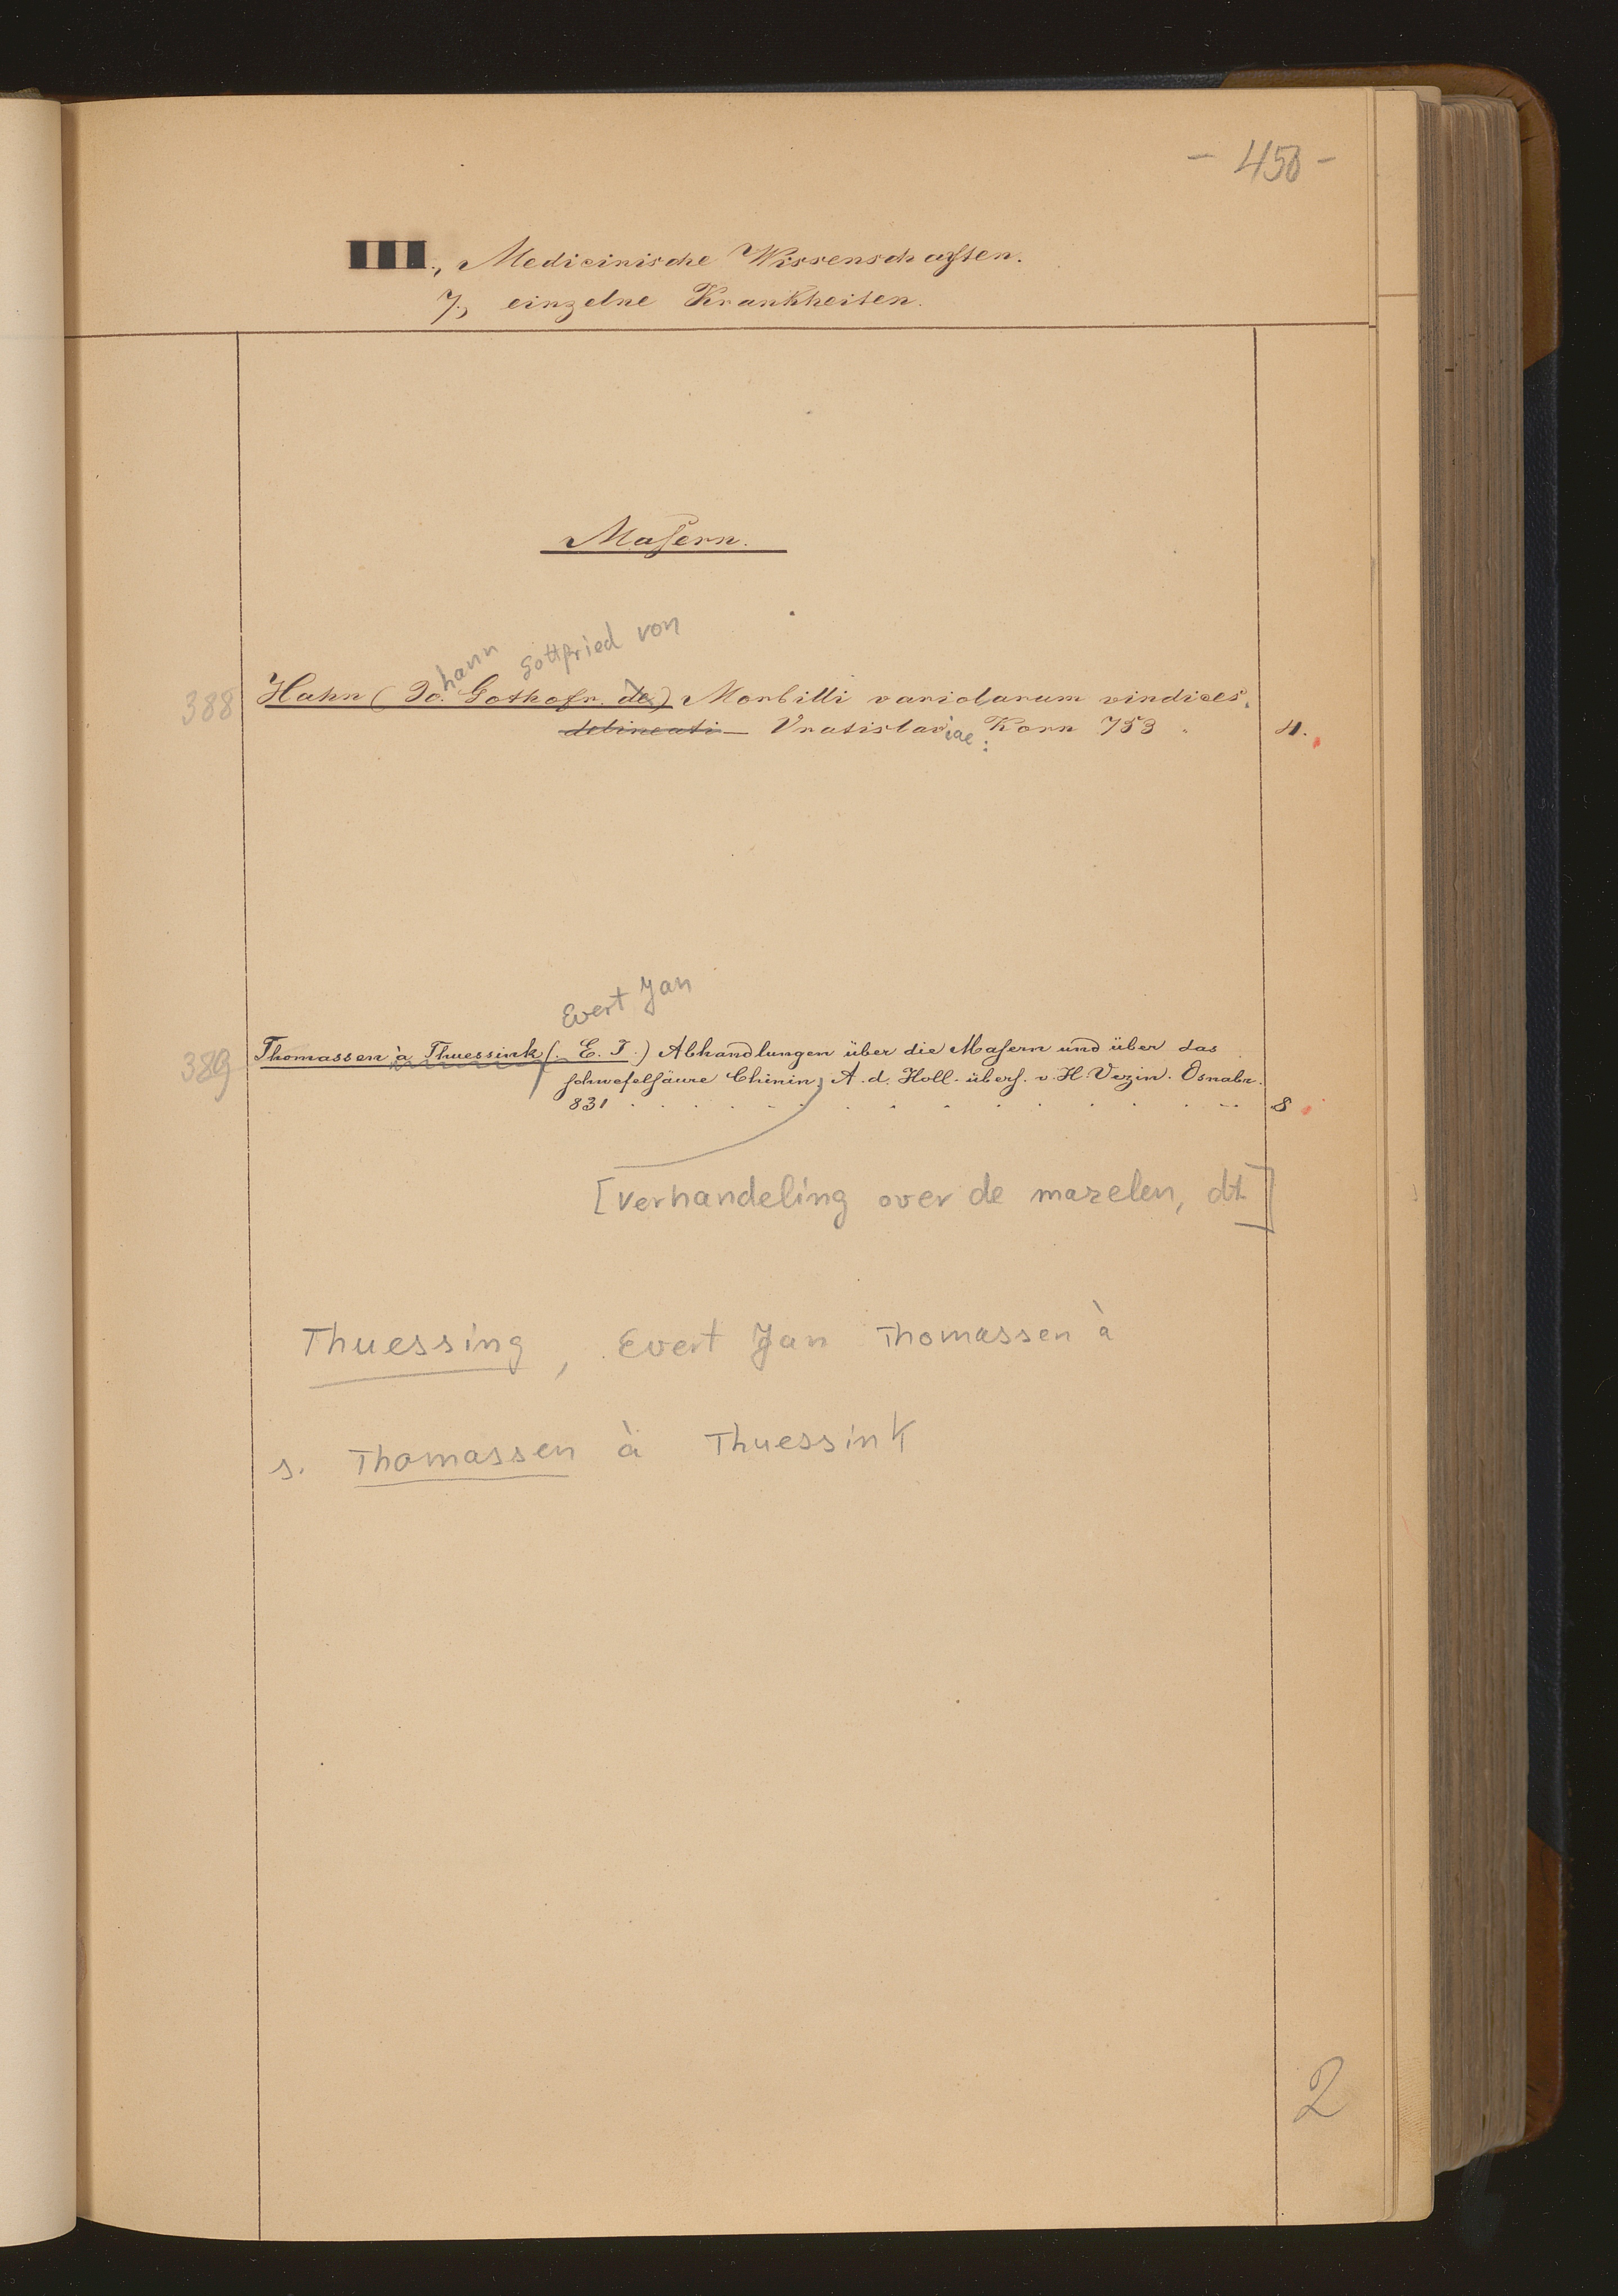 - 458 -
III., Medicinische Wissenschaften.
7., einzelne Krankheiten.
Maſern.
hann Gottfried von
388 Hahn (Jo. Gothofr. de) Morbilli variolarum vindices.
delineati — Vratislaviae: Korn 753 . 4.
Evert Jan
389 Thomassen à Thuessink (. E. J.) Abhandlungen über die Maſern und über das
ſchwefelſäure Chinin, A. d. Holl. überſ. v. H. Vezin. Osnabr.
831 . . . . . . . . . . . . . . 8
[verhandeling over de mazelen, dt.]
Thuessing, Evert Jan Thomassen à
s. Thomassen à Thuessink
2